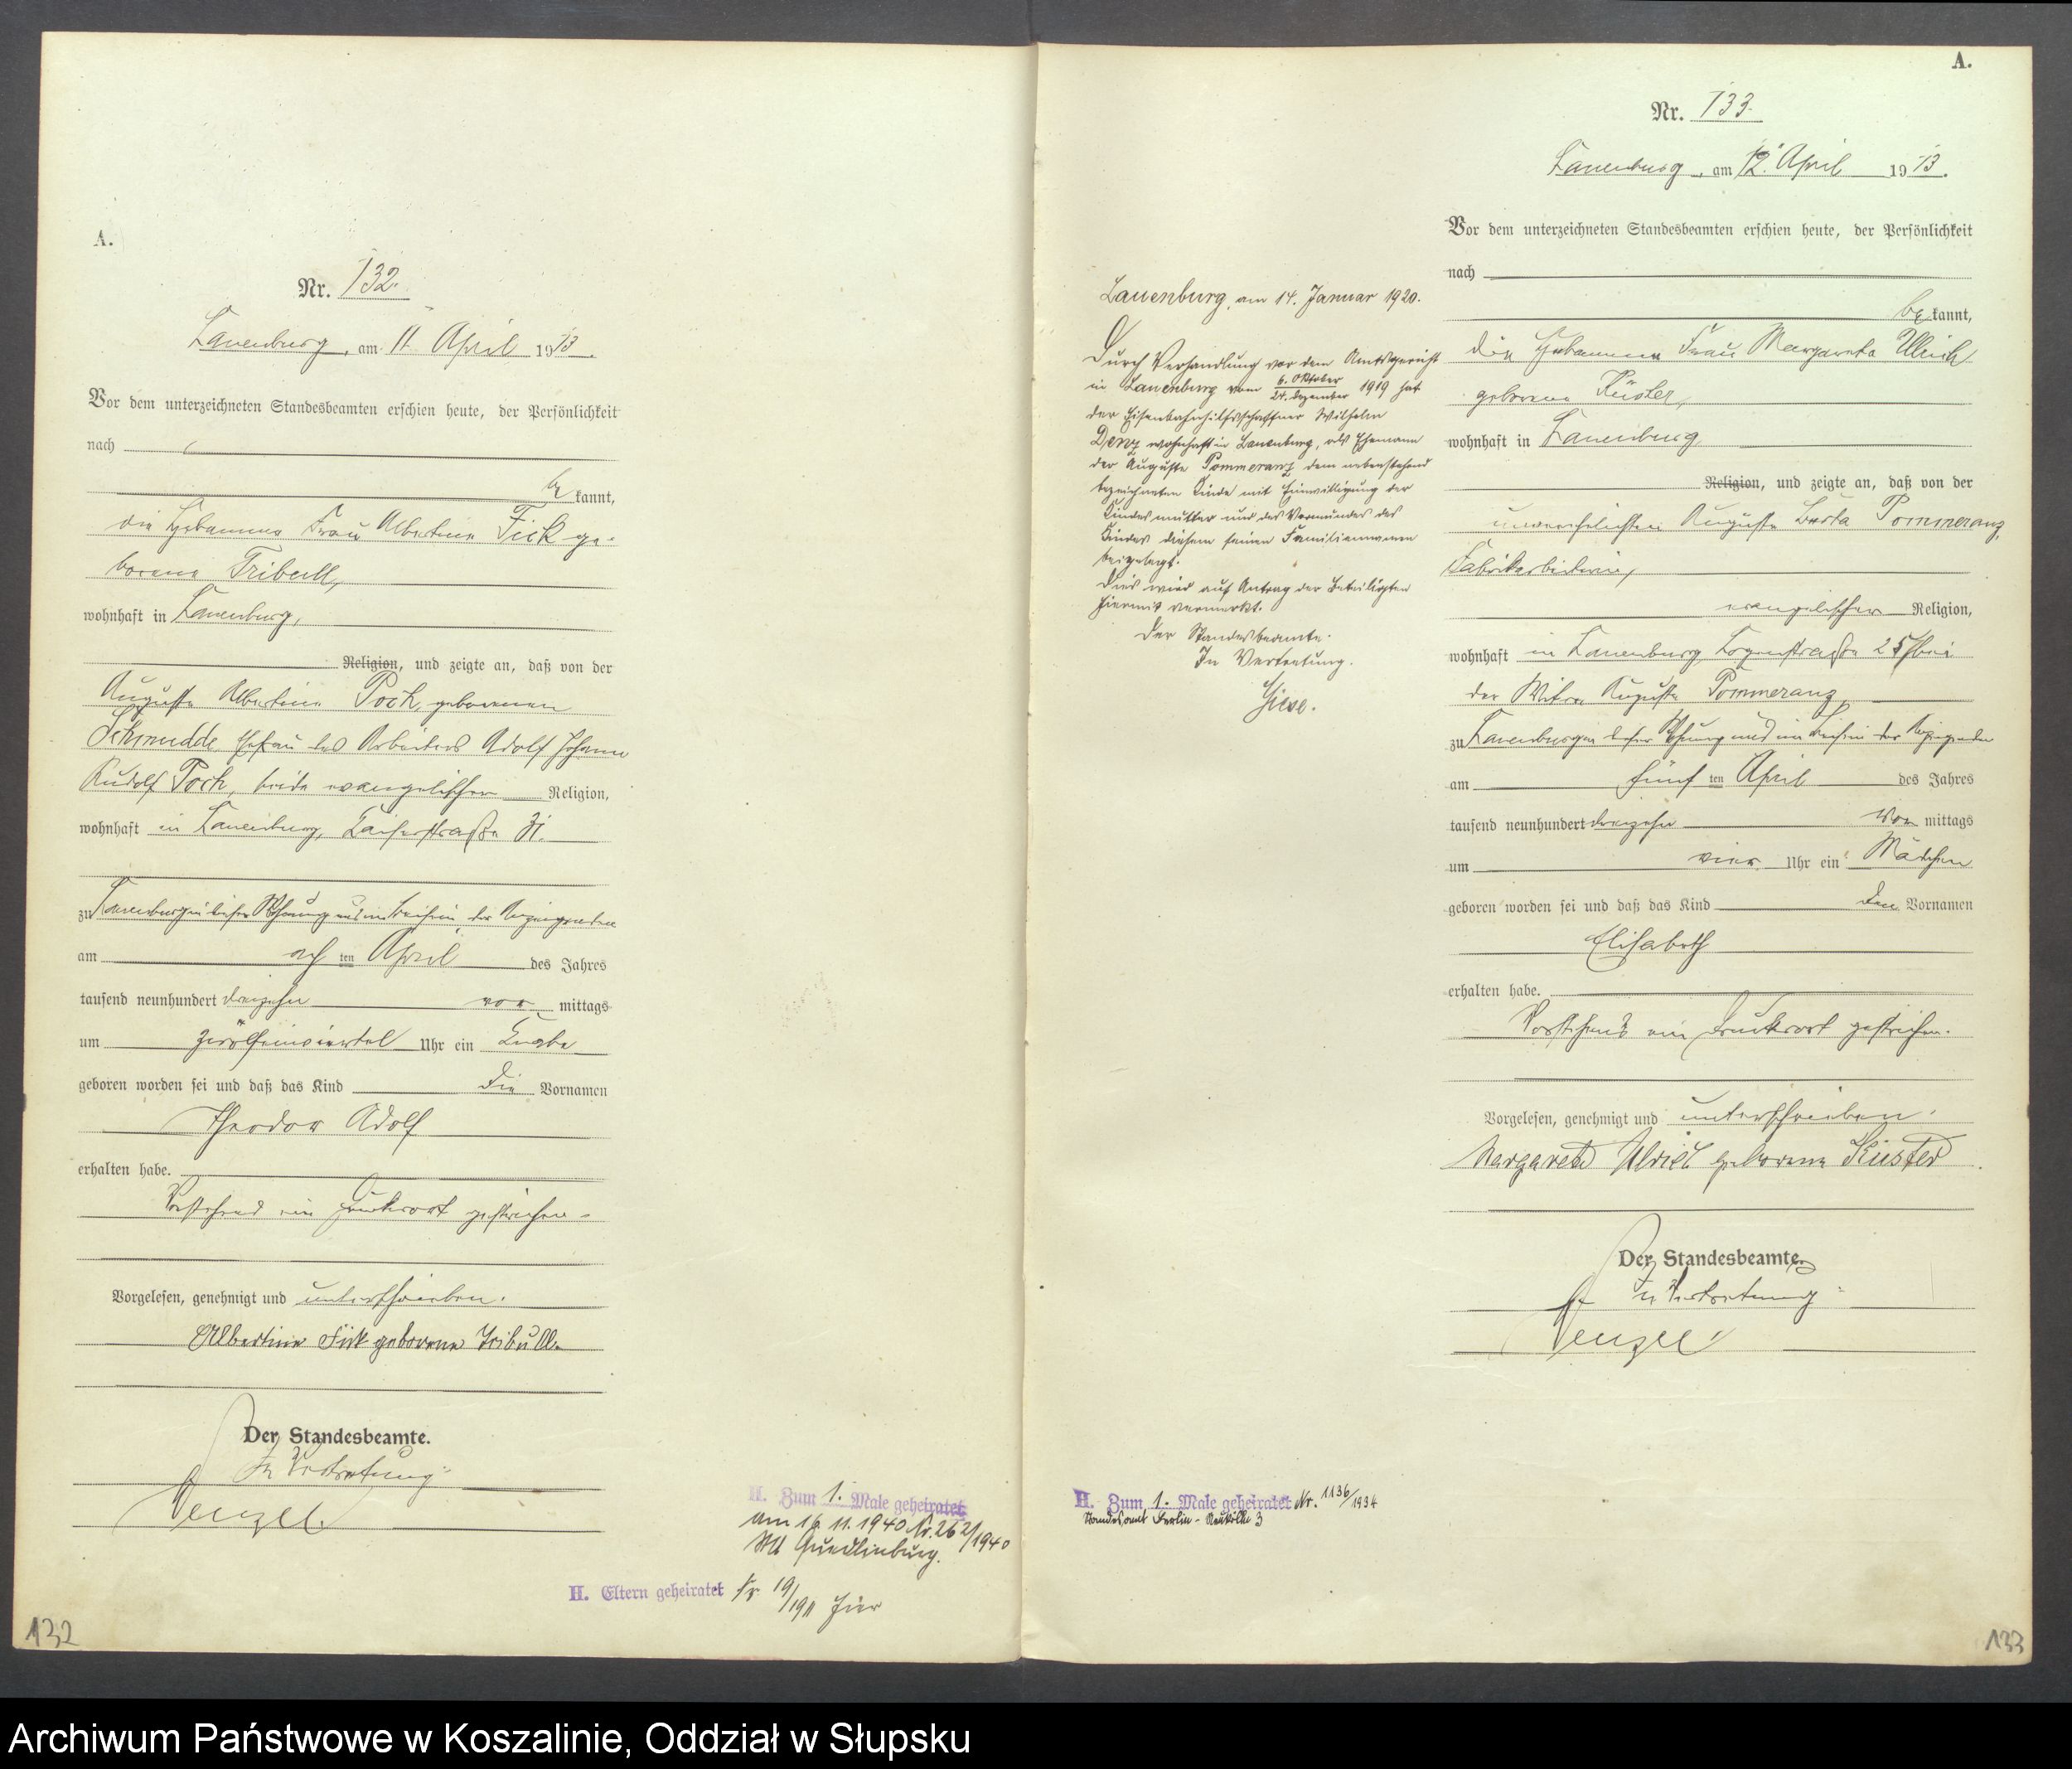 A.
Nr. 132.
Lauenburg, am 11. April 1913.
Vor dem unterzeichneten Standesbeamten erschien heute, der Persönlichkeit
nach
be kannt,
die Hebamme Frau Albertine Fick ge-
borene Tribull,
wohnhaft in Lauenburg,
Religion, und zeigte an, daß von der
Auguste Albertine Poch, geborenen
Schmudde, Ehefrau des Arbeiters Adolf Johann
Rudolf Poch, beide evangelischer Religion,
wohnhaft in Lauenburg, Kaiserstraße 31.
zu Lauenburg in dieser Wohnung und im Beisein der Anzeigenden
am ach ten April des Jahres
tausend neunhundert dreizehn vor mittags
um zwölfeinviertel Uhr ein Knabe
geboren worden sei und daß das Kind die Vornamen
Theodor Adolf
erhalten habe.
Vorstehend ein Druckwort gestrichen.
Vorgelesen, genehmigt und unterschrieben.
Albertine Fick geborene Tribull.
Der Standesbeamte.
In Vertretung
Wenzel.
H. Zum 1. Male geheiratet
am 16.11.1940 Nr. 262/1940
StA Quedlinburg.
H. Eltern geheiratet Nr. 19/1911 hier
132
A.
Nr. 133.
Lauenburg, am 12. April 1913.
Vor dem unterzeichneten Standesbeamten erschien heute, der Persönlichkeit
nach
be kannt,
die Hebamme Frau Margarete Ulrich
geborene Küster,
wohnhaft in Lauenburg
Religion, und zeigte an, daß von der
unverehelichten Auguste Berta Pommeranz,
Fabrikarbeiterin,
evangelischer Religion,
wohnhaft in Lauenburg, Logenstraße 25 bei
der Witwe Auguste Pommeranz
zu Lauenburg in dieser Wohnung und im Beisein der Anzeigenden
am fünf ten April des Jahres
tausend neunhundert dreizehn vor mittags
um vier Uhr ein Mädchen
geboren worden sei und daß das Kind den Vornamen
Elisabeth
erhalten habe.
Vorstehend ein Druckwort gestrichen.
Vorgelesen, genehmigt und unterschrieben.
Margarete Ulrich geborene Küster
Der Standesbeamte.
In Vertretung
Wenzel.
Lauenburg, am 14. Januar 1920.
Durch Verhandlung vor dem Amtsgericht
in Lauenburg vom 6. Oktober / 24. Dezember 1919 hat
der Eisenbahnhilfsschaffner Wilhelm
Denz wohnhaft in Lauenburg, als Ehemann
der Auguste Pommeranz dem nebenstehend
bezeichneten Kinde mit Einwilligung der
Kindesmutter und des Vormundes des
Kindes diesem seinen Familiennamen
beigelegt.
Dies wird auf Antrag der Beteiligten
hiermit vermerkt.
Der Standesbeamte.
In Vertretung.
Giese.
H. Zum 1. Male geheiratet Nr. 1136/1934
Standesamt Berlin-Neukölln 3
133
Archiwum Państwowe w Koszalinie, Oddział w Słupsku